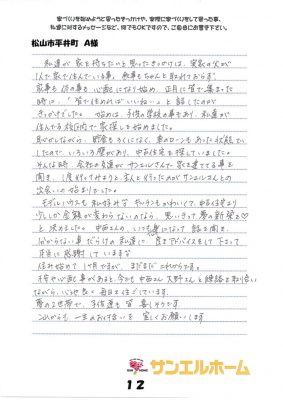 家づくりを始めようと思ったきっかけや、実際に家づくりをして思った事、
私達に対するメッセージなど、何でもOKですので、ご自由にお書き下さい。
松山市平井町 A様
私達が家を持ちたいと思ったきっかけは、実家の父が
1人で家で住んでいる事、食事もちゃんと取れておらず、
食事も体の事も心配になり始め、正月に皆で集まった
時に、「皆で住めればいいね…」と話したのが
きっかけでした。始めは、子供の学校の事もあり、私達が
住んでる校区内で家探しを始めました。
しかしながら、貯金も少なく、車のローンもあった状態で
したので、いろいろ壁があり、中古住宅を探していました。
そんな時、会社の友達がサンエルさんで家を建てる事を
聞き、1度行ってみようと、主人と行ったのがサンエルさんとの
出会いの始まりでした。
モデルハウスも私好みで キッチンもかわいくて、中古住宅より
少ししか金額が変わらないのなら、思いきって夢の新築を♡
と決めました。中西さんの、いつも親身になって話を聞き、
分からない事だらけの私達に、良きアドバイスをして下さって
本当に感謝しています
住み始めて1ヶ月ですが、まだまだこれからです。
何か心配事があると、今でも中西さん、大野さんと連絡を取り合い
ながら、心地良く毎日を過ごしています。
夢の2世帯で、子供達も皆喜んでます。
これからも一生のお付き合いを宜しくお願いします。
サンエルホーム
12